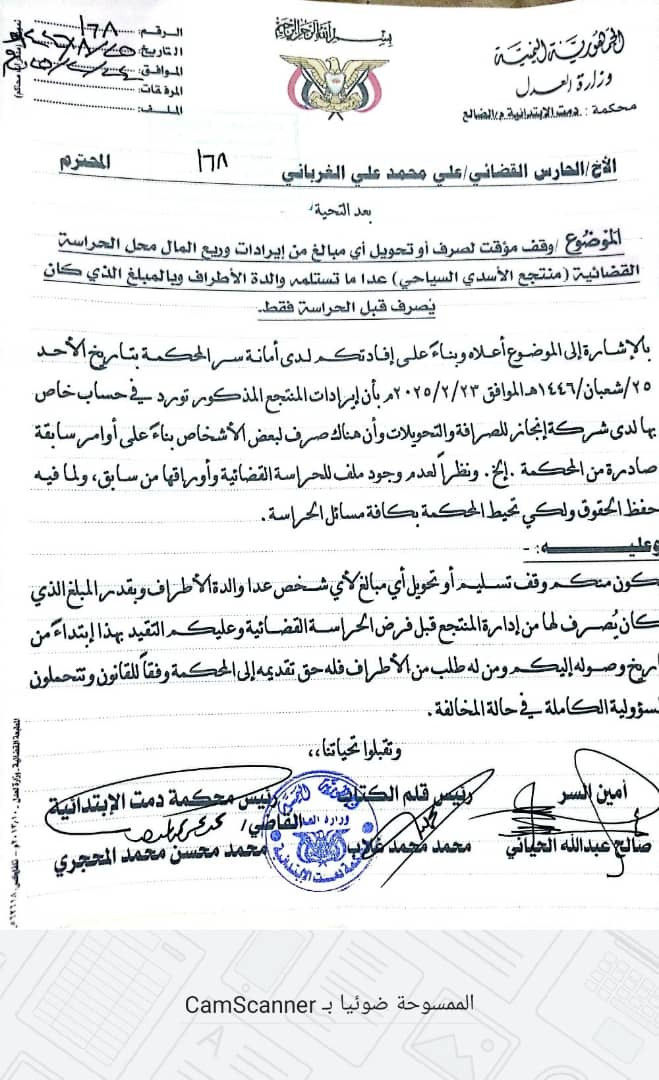 بسم الله الرحمن الرحيم
الجمهورية اليمنية
وزارة العدل
محكمة : دمت الإبتدائية م/الضالع
الرقم: ١٦٨
التاريخ:
الموافق:
المرفقات:
الملف:
الأخ/الحارس القضائي/علي محمد علي الغرباني ١٦٨ المحترم
بعد التحية،
الموضوع /وقف مؤقت لصرف أو تحويل أي مبالغ من إيرادات وريع المال محل الحراسة
القضائية (منتجع الأسدي السياحي) عدا ما تستلمه والدة الأطراف وبالمبلغ الذي كان
يُصرف قبل الحراسة فقط.
بالإشارة إلى الموضوع أعلاه وبناءً على إفادتكم لدى أمانة سر المحكمة بتاريخ الأحد
٢٥/شعبان/١٤٤٦هـ الموافق ٢٠٢٥/٢/٢٣م بأن إيرادات المنتجع المذكور تورد في حساب خاص
بها لدى شركة إنجاز للصرافة والتحويلات وأن هناك صرف لبعض الأشخاص بناءً على أوامر سابقة
صادرة من المحكمة .إلخ. ونظراً لعدم وجود ملف للحراسة القضائية وأوراقها من سابق، ولما فيه
حفظ الحقوق ولكي تحيط المحكمة بكافة مسائل الحراسة.
وعليه:-
يكون منكم وقف تسليم أو تحويل أي مبالغ لأي شخص عدا والدة الأطراف وبقدر المبلغ الذي
كان يُصرف لها من إدارة المنتجع قبل فرض الحراسة القضائية وعليكم التقيد بهذا إبتداءً من
اريخ وصوله إليكم ومن له طلب من الأطراف فله حق تقديمه إلى المحكمة وفقاً للقانون وتتحملون
لمسؤولية الكاملة في حالة المخالفة.
وتقبلوا تحياتنا،،
أمين السر
صالح عبدالله الحياني
رئيس قلم الكتاب
محمد محمد غلاب
رئيس محكمة دمت الإبتدائية
القاضي/
محمد محسن محمد المحجري
الممسوحة ضوئيا بـ CamScanner